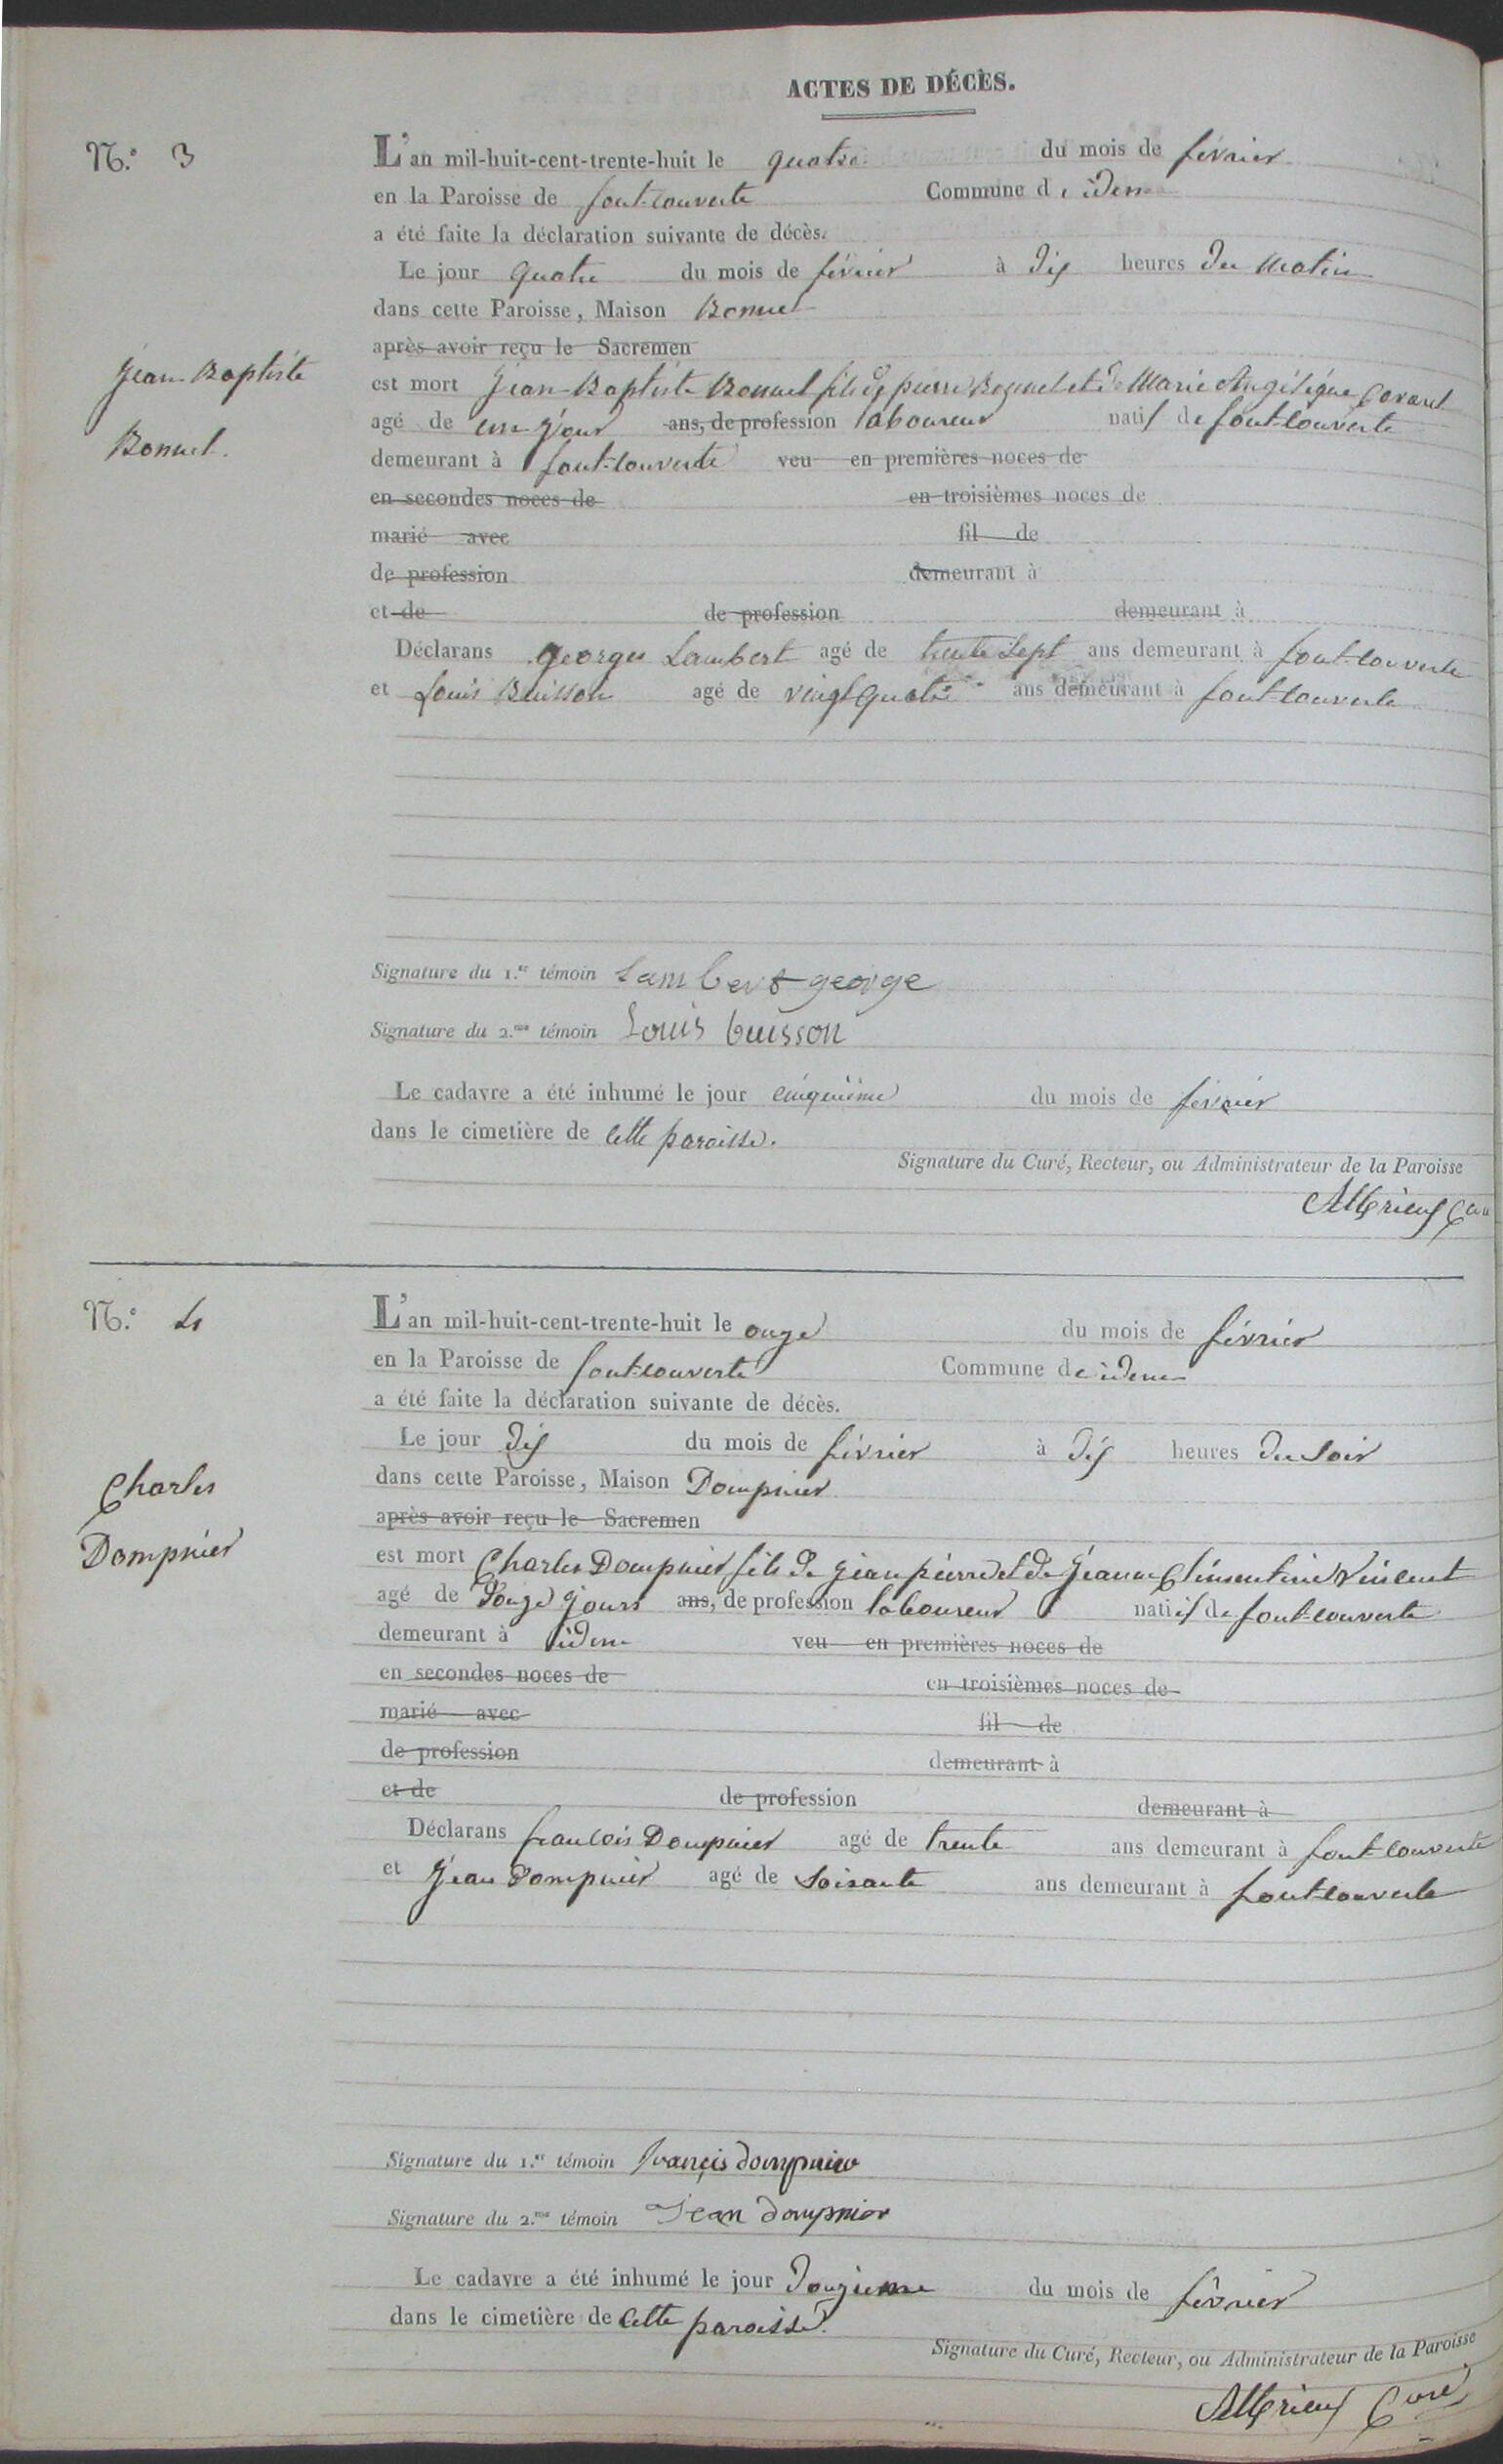 ACTES DE DÉCÈS.
N.º 3
L'an mil-huit-cent-trente-huit le quatre du mois de février
en la Paroisse de font-couverte Commune de idem
a été faite la déclaration suivante de décès.
Le jour quatre du mois de février à dix heures du matin
dans cette Paroisse, Maison Bonnel
après avoir reçu le Sacremen
Jean-Baptiste
Bonnel.
est mort Jean-Baptiste Bonnel fils de pierre Bonnel et de Marie Angélique
agé de un jour ans, de profession laboureur natif de font-couverte
demeurant à font-couverte veu en premières noces de
en secondes noces de en troisièmes noces de
marié avec fil de
de profession demeurant à
et de de profession demeurant à
Déclarans georges Lambert agé de trente sept ans demeurant à font-couverte
et Louis Buisson agé de vingt quatre ans demeurant à font-couverte
Signature du 1.er témoin Lambert george
Signature du 2.me témoin Louis buisson
Le cadavre a été inhumé le jour cinquième du mois de février
dans le cimetière de cette paroisse.
Signature du Curé, Recteur, ou Administrateur de la Paroisse
N.º 4
L'an mil-huit-cent-trente-huit le onze du mois de février
en la Paroisse de font-couverte Commune de idem
a été faite la déclaration suivante de décès.
Le jour dix du mois de février à dix heures du soir
dans cette Paroisse, Maison Dompnier
après avoir reçu le Sacremen
Charles
Dompnier
est mort Charles Dompnier fils de jean pierre et de jeanne Clémentine Vincent
agé de douze jours ans, de profession laboureur natif de font-couverte
demeurant à idem veu en premières noces de
en secondes noces de en troisièmes noces de
marié avec fil de
de profession demeurant à
et de de profession demeurant à
Déclarans francois Dompnier agé de trente ans demeurant à font-couverte
et jean Dompnier agé de soisante ans demeurant à font-couverte
Signature du 1.er témoin françis dompnier
Signature du 2.me témoin Jean dompnier
Le cadavre a été inhumé le jour douzieme du mois de février
dans le cimetière de cette paroisse.
Signature du Curé, Recteur, ou Administrateur de la Paroisse
Curé